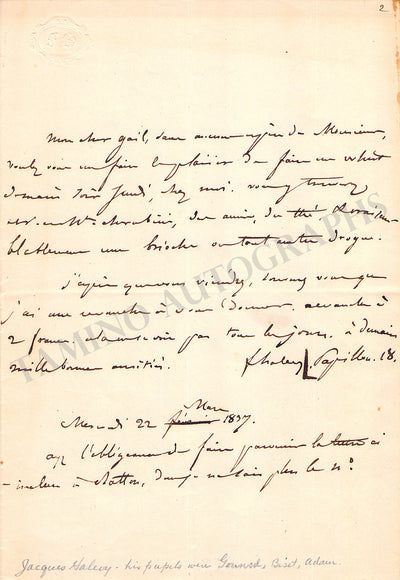 2
Mon cher gail, sans aucune espèce de Monsieur,
voulez vous me faire le plaisir de faire un whist
demain soir Jeudi, chez moi. vous y trouverez
Mr. et Mme. cherubini, des amis, du thé & vraisem-
blablement une brioche ou tout autre drogue.
J'espère que vous viendrez, souvenez vous que
j'ai une revanche à vous donner, revanche à
2 francs, cela ne se voit pas tous les jours. à demain
mille bonnes amitiés.
fhalevy Papillon. 18.
Mars
Mercredi 22 février 1837.
ayez l'obligeance de faire parvenir la lettre ci
-incluse à chatton, dont je ne sais plus le no.
TAMINO AUTOGRAPHS
Jacques Halevy - his pupils were Gounod, Bizet, Adam.